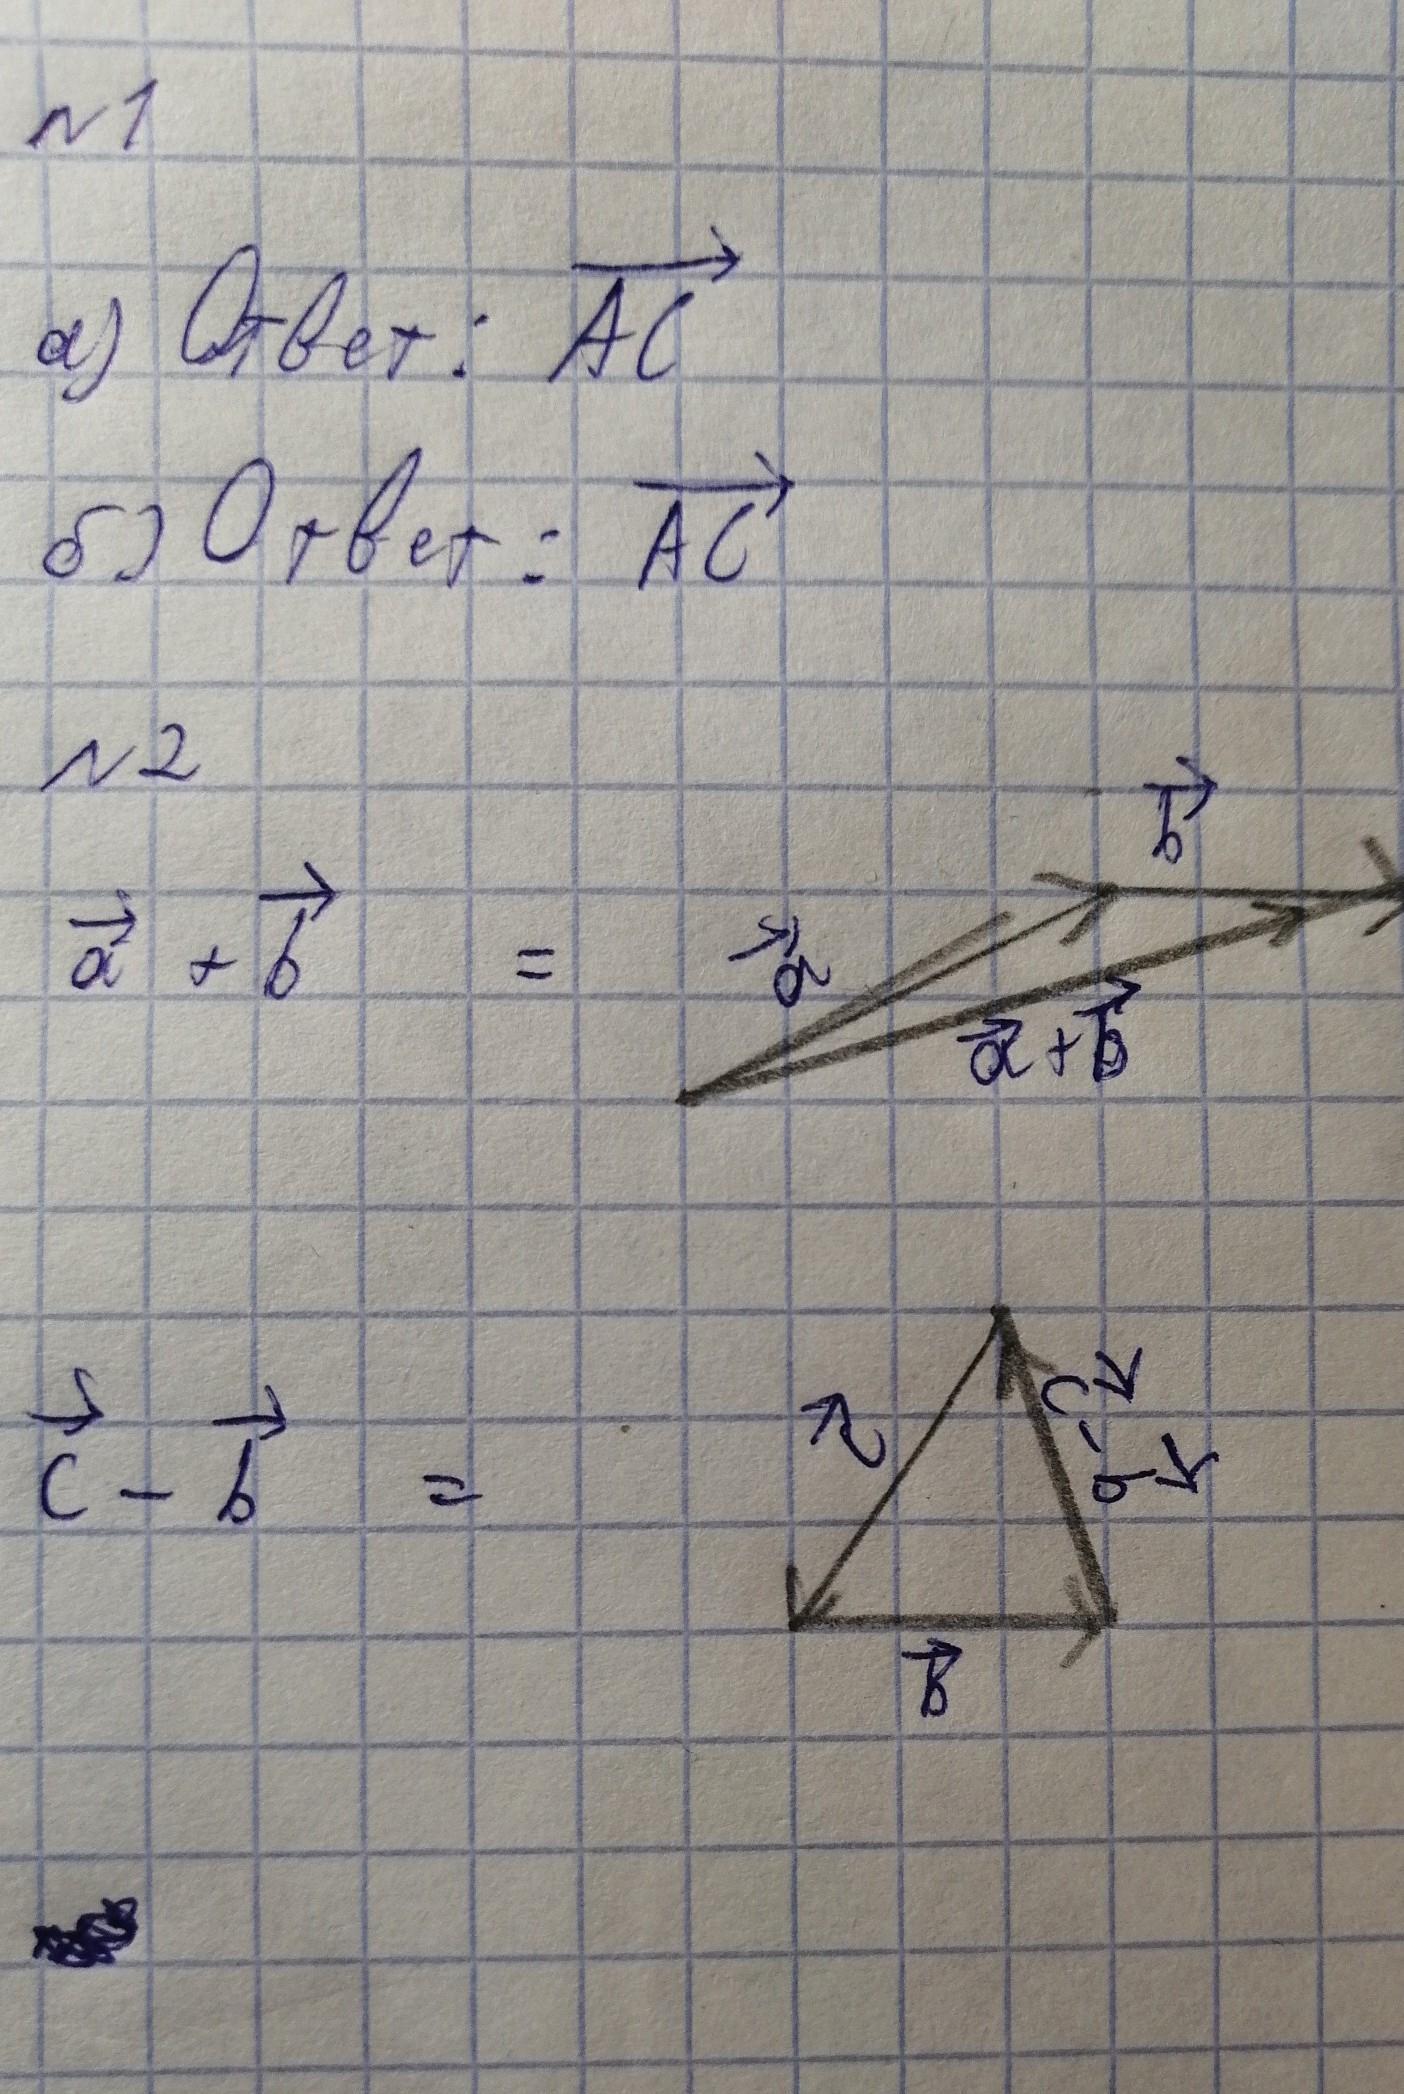 №1
а) Ответ: AC
б) Ответ: AC
№2
a + b =
a
b
a + b
c - b =
c
c - b
b